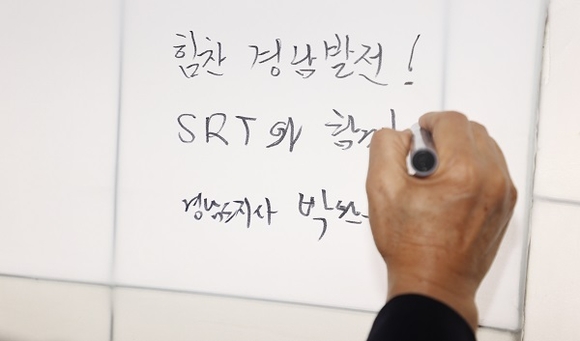 힘찬 경남발전!
SRT와 함께
경남도지사 박완